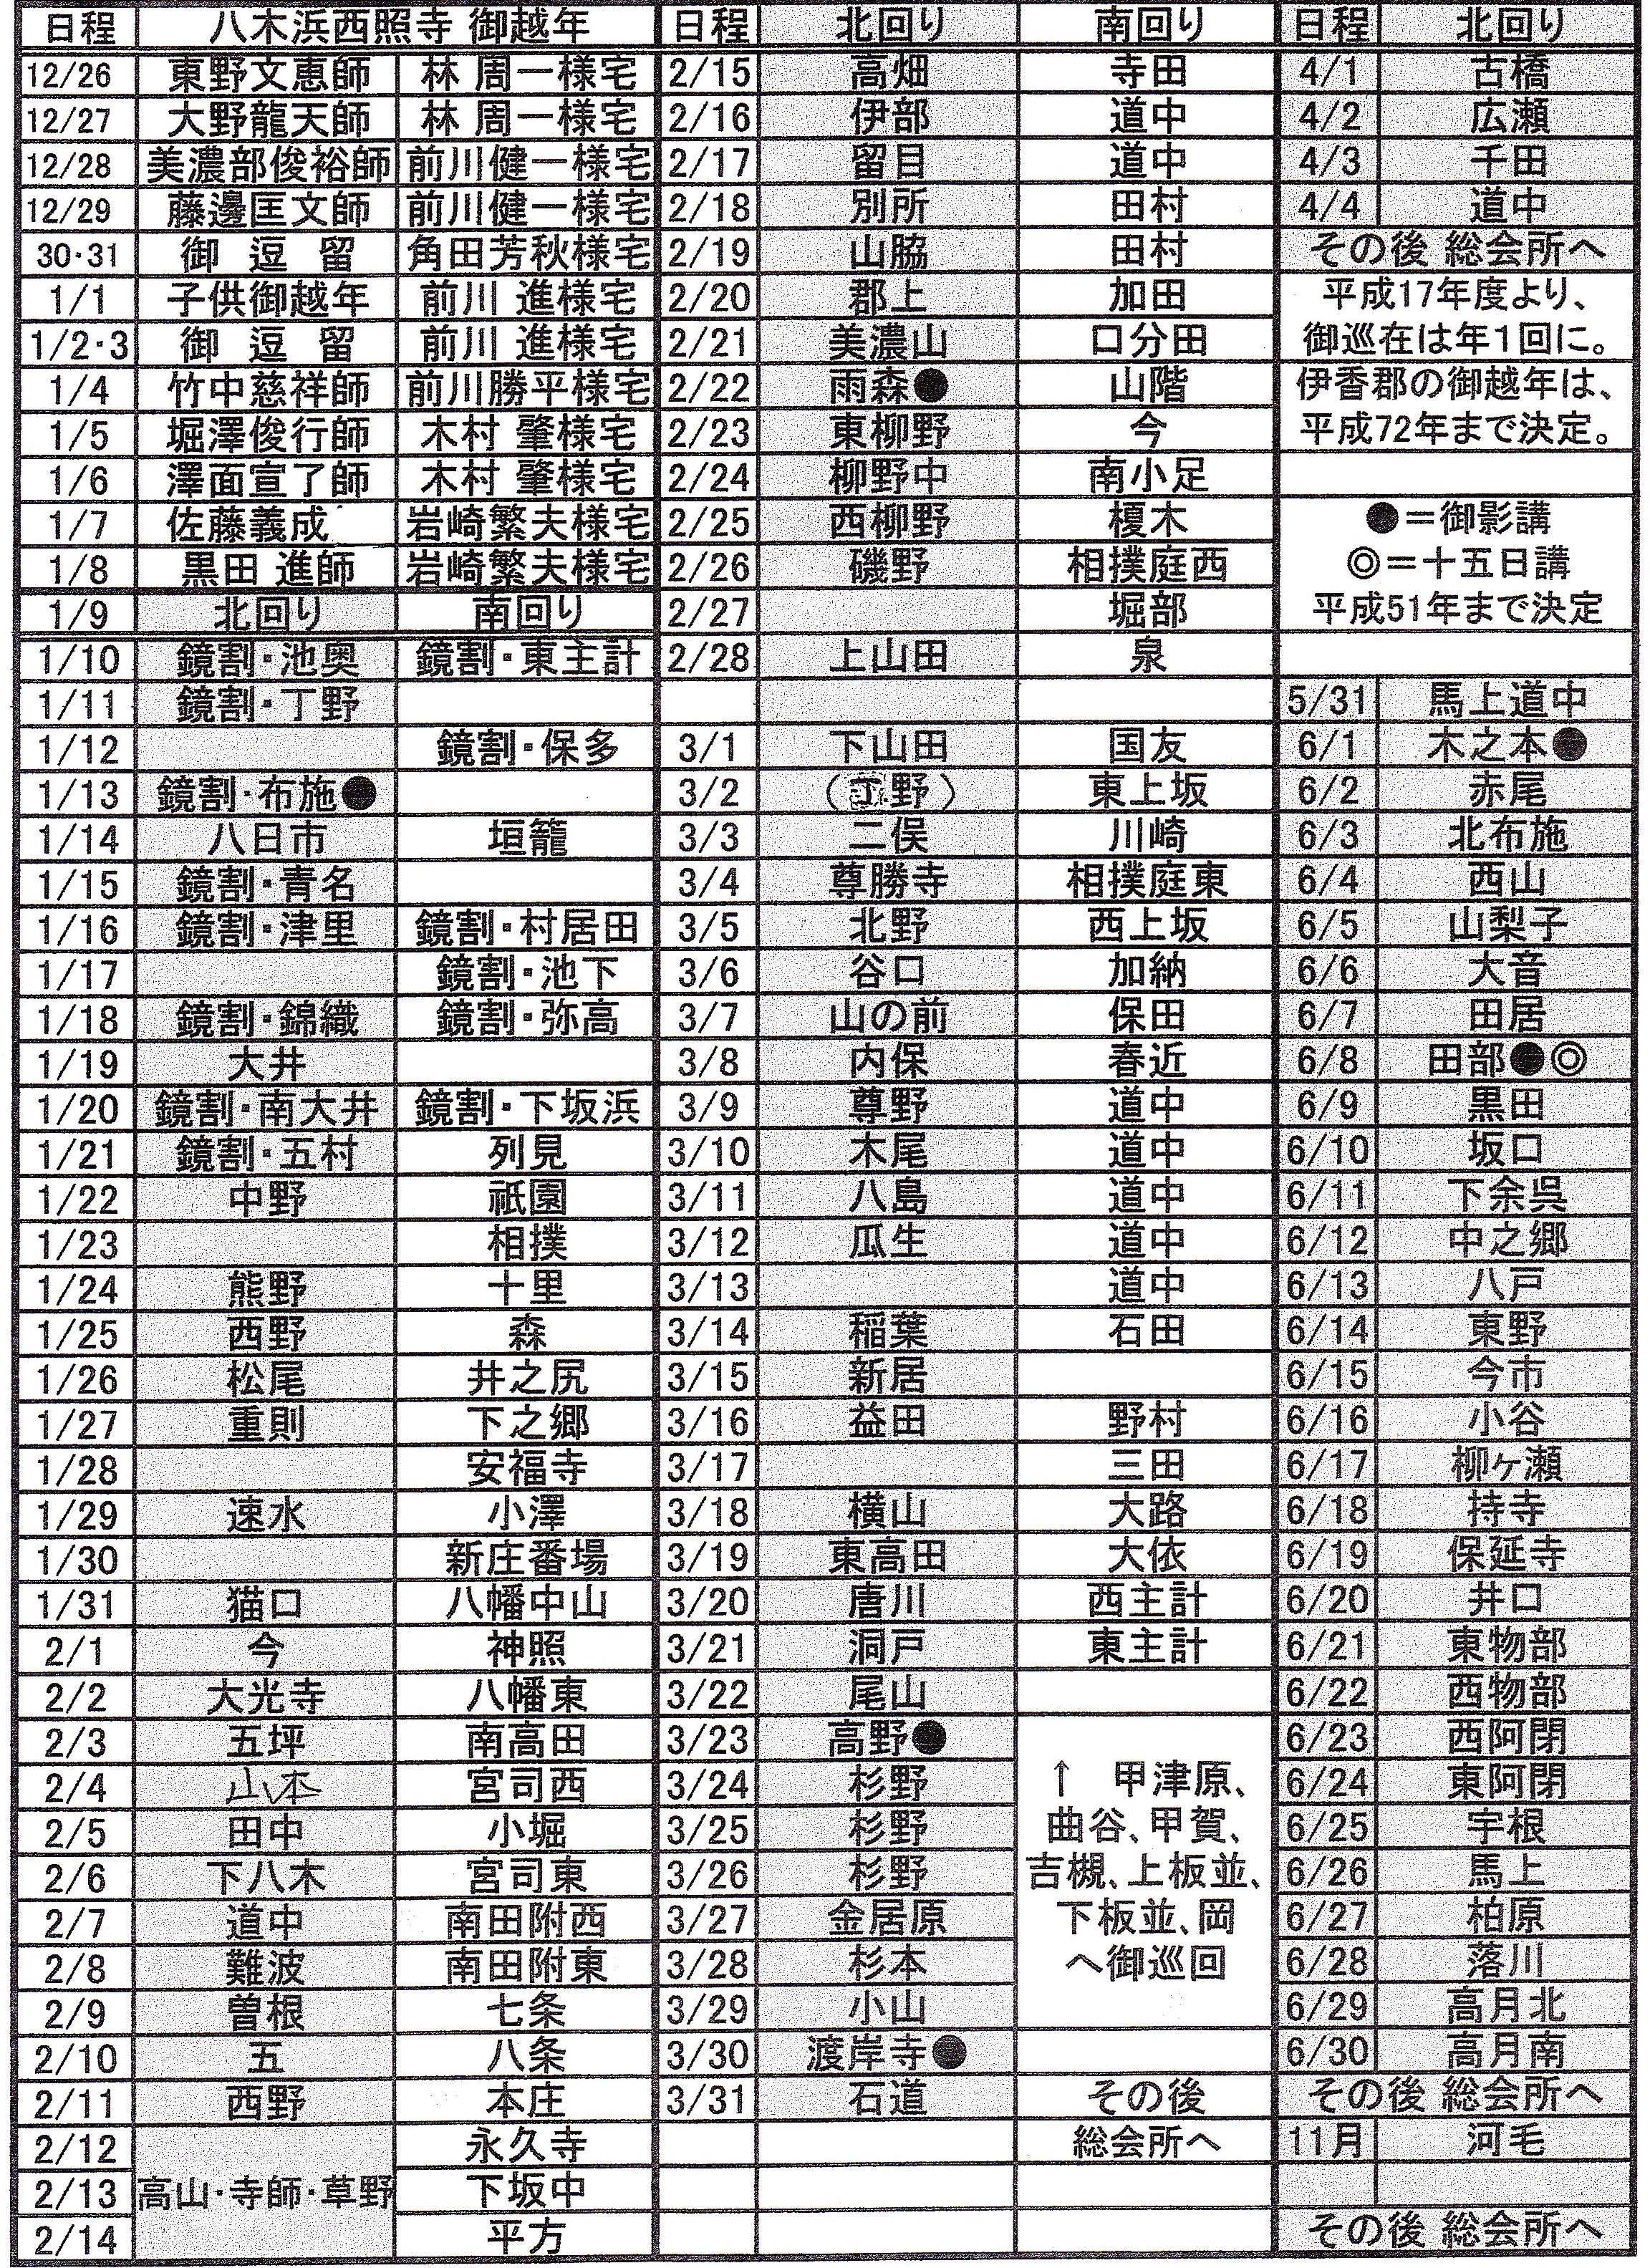 日程 八木浜西照寺 御越年
12/26 東野文恵師 林 周一様宅
12/27 大野龍天師 林 周一様宅
12/28 美濃部俊裕師 前川健一様宅
12/29 藤邊匡文師 前川健一様宅
30・31 御 逗 留 角田芳秋様宅
1/1 子供御越年 前川 進様宅
1/2・3 御 逗 留 前川 進様宅
1/4 竹中慈祥師 前川勝平様宅
1/5 堀澤俊行師 木村 肇様宅
1/6 澤面宣了師 木村 肇様宅
1/7 佐藤義成 岩崎繁夫様宅
1/8 黒田 進師 岩崎繁夫様宅
1/9 北回り 南回り
1/10 鏡割・池奥 鏡割・東主計
1/11 鏡割・丁野
1/12 鏡割・保多
1/13 鏡割・布施●
1/14 八日市 垣籠
1/15 鏡割・青名
1/16 鏡割・津里 鏡割・村居田
1/17 鏡割・池下
1/18 鏡割・錦織 鏡割・弥高
1/19 大井
1/20 鏡割・南大井 鏡割・下坂浜
1/21 鏡割・五村 列見
1/22 中野 祇園
1/23 相撲
1/24 熊野 十里
1/25 西野 森
1/26 松尾 井之尻
1/27 重則 下之郷
1/28 安福寺
1/29 速水 小澤
1/30 新庄番場
1/31 猫口 八幡中山
2/1 今 神照
2/2 大光寺 八幡東
2/3 五坪 南高田
2/4 山本 宮司西
2/5 田中 小堀
2/6 下八木 宮司東
2/7 道中 南田附西
2/8 難波 南田附東
2/9 曽根 七条
2/10 五 八条
2/11 西野 本庄
2/12 永久寺
2/13 高山・寺師・草野 下坂中
2/14 平方
日程 北回り 南回り
2/15 高畑 寺田
2/16 伊部 道中
2/17 留目 道中
2/18 別所 田村
2/19 山脇 田村
2/20 郡上 加田
2/21 美濃山 口分田
2/22 雨森● 山階
2/23 東柳野 今
2/24 柳野中 南小足
2/25 西柳野 榎木
2/26 磯野 相撲庭西
2/27 堀部
2/28 上山田 泉
3/1 下山田 国友
3/2 (丁野) 東上坂
3/3 二俣 川崎
3/4 尊勝寺 相撲庭東
3/5 北野 西上坂
3/6 谷口 加納
3/7 山の前 保田
3/8 内保 春近
3/9 尊野 道中
3/10 木尾 道中
3/11 八島 道中
3/12 瓜生 道中
3/13 道中
3/14 稲葉 石田
3/15 新居
3/16 益田 野村
3/17 三田
3/18 横山 大路
3/19 東高田 大依
3/20 唐川 西主計
3/21 洞戸 東主計
3/22 尾山
3/23 高野●
3/24 杉野
3/25 杉野
3/26 杉野
3/27 金居原
3/28 杉本
3/29 小山
3/30 渡岸寺●
3/31 石道
↑ 甲津原、
曲谷、甲賀、
吉槻、上板並、
下板並、岡
へ御巡回
その後
総会所へ
日程 北回り
4/1 古橋
4/2 広瀬
4/3 千田
4/4 道中
その後 総会所へ
平成17年度より、
御巡在は年1回に。
伊香郡の御越年は、
平成72年まで決定。
●=御影講
◎=十五日講
平成51年まで決定
5/31 馬上道中
6/1 木之本●
6/2 赤尾
6/3 北布施
6/4 西山
6/5 山梨子
6/6 大音
6/7 田居
6/8 田部●◎
6/9 黒田
6/10 坂口
6/11 下余呉
6/12 中之郷
6/13 八戸
6/14 東野
6/15 今市
6/16 小谷
6/17 柳ヶ瀬
6/18 持寺
6/19 保延寺
6/20 井口
6/21 東物部
6/22 西物部
6/23 西阿閉
6/24 東阿閉
6/25 宇根
6/26 馬上
6/27 柏原
6/28 落川
6/29 高月北
6/30 高月南
その後 総会所へ
11月 河毛
その後 総会所へ